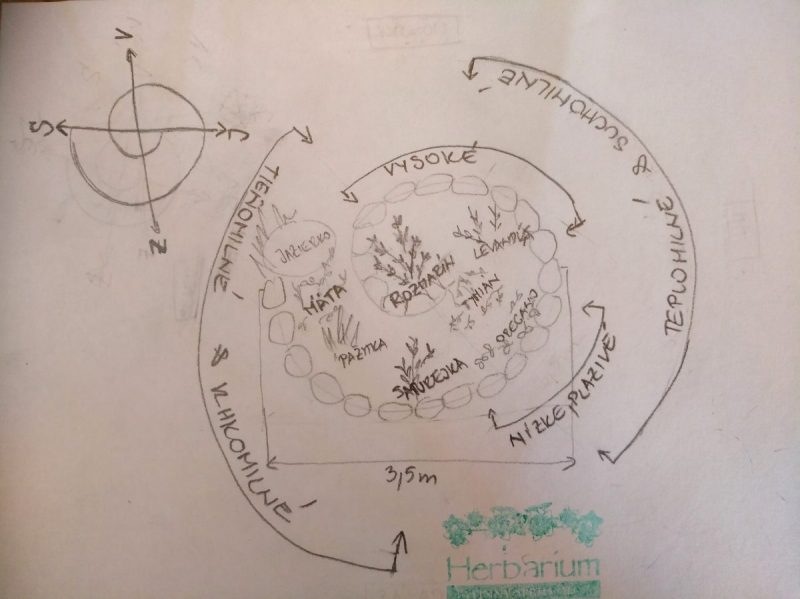 V
S
J
Z
TIEŇOMILNÉ & VLHKOMILNÉ
VYSOKÉ
SUCHOMILNÉ & TEPLOMILNÉ
JAZIERKO
MÄTA
PAŽITKA
ROZMARÍN
LEVANDUĽA
TYMIAN
OREGANO
SATUREJKA
NÍZKE, PLAZIVÉ
3,5m
Herbarium